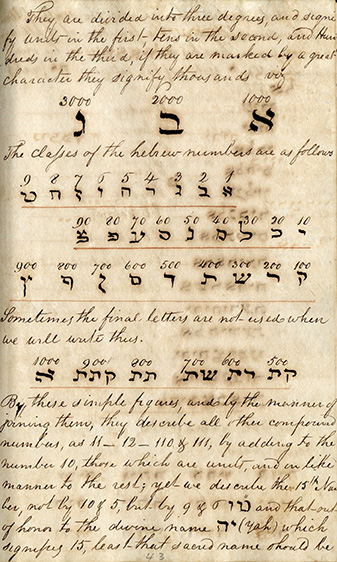 They are divided into three degrees, and signi
fy units in the first - tens in the second, and Hun
dreds in the third, if they are marked by a great
character they signify thousands viz
3000 2000 1000
א ב ג
The classes of the hebrew numbers are as follows
9 8 7 6 5 4 3 2 1
א ב ג ד ה ו ז ח ט
90 80 70 60 50 40 30 20 10
י כ ל מ נ ס ע פ צ
900 800 700 600 500 400 300 200 100
ק ר ש ת ך ם ן ף ץ
Sometimes the final letters are not used when
we will write thus.
1000 900 800 700 600 500
קת רת שת תת קתת א
By these simple figures, and by the manner of
joining them, they describe all other compound
number, as 11 - 12 - 110 & 111, by adding to the
number 10, those which are units, and in like
manner to the rest; yet we describe the 15th Num
ber, not by 10 & 5, but by 9 & 6 טו and that out
of honor to the divine name יה (Yah) which
signifies 15, least that sacred name should be
43